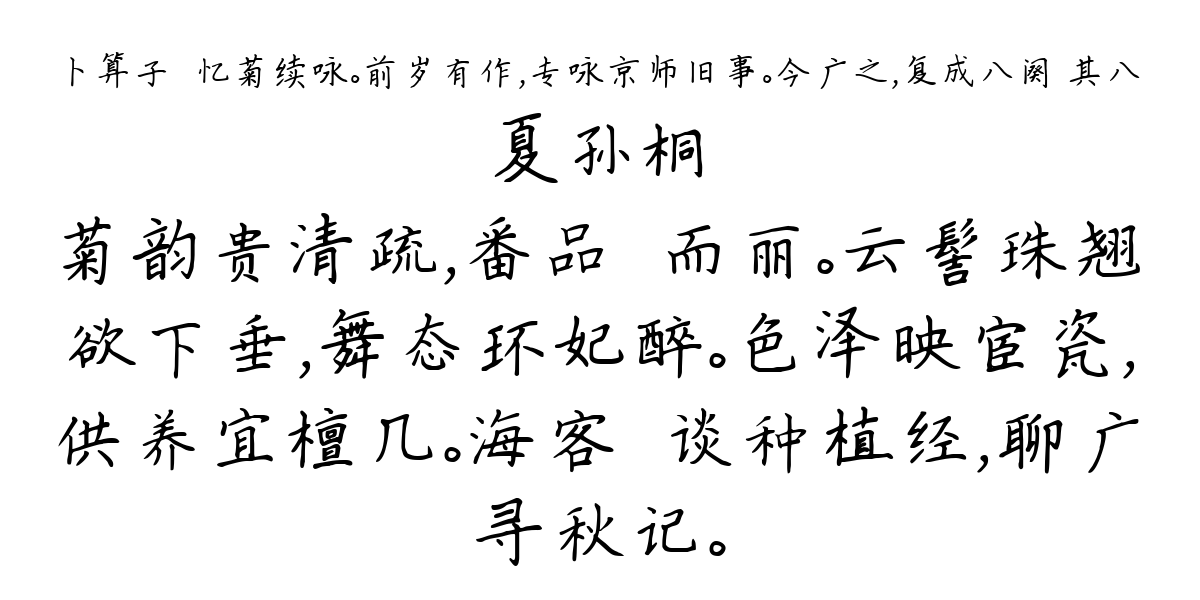 卜算子 忆菊续咏。前岁有作,专咏京师旧事。今广之,复成八阕 其八
夏孙桐
菊韵贵清疏,番品 而丽。云髻珠翘
欲下垂,舞态环妃醉。色泽映宦瓷,
供养宜檀几。海客 谈种植经,聊广
寻秋记。